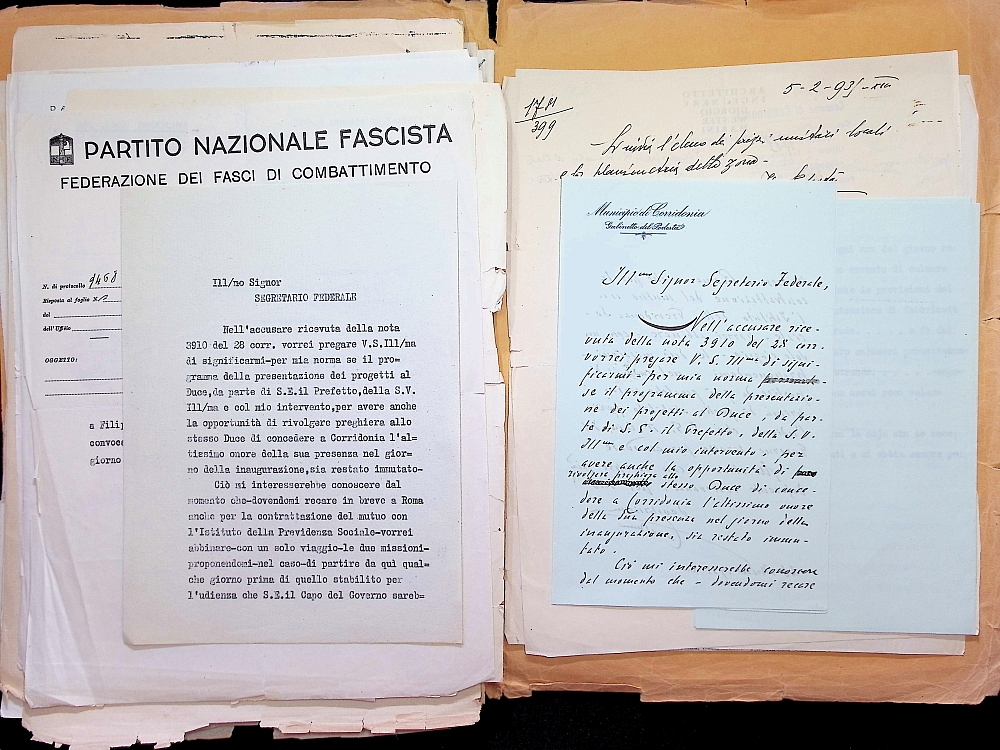 PARTITO NAZIONALE FASCISTA
FEDERAZIONE DEI FASCI DI COMBATTIMENTO
N. di protocollo
Risposta al foglio N.
del
dell'Ufficio
OGGETTO:
a Filip
convoca
giorno
Ill/mo Signor
SEGRETARIO FEDERALE
Nell'accusare ricevuta della nota
3910 del 28 corr. vorrei pregare V.S.Ill/ma
di significarmi-per mia norma se il pro=
gramma della presentazione dei progetti al
Duce,da parte di S.E.il Prefetto,della S.V.
Ill/ma e col mio intervento,per avere anche
la opportunità di rivolgere preghiera allo
stesso Duce di concedere a Corridonia l'al=
tissimo onore della sua presenza nel gior=
no della inaugurazione,sia restato immutato-
Ciò mi interesserebbe conoscere dal
momento che-dovendomi recare in breve a Roma
anche per la contrattazione del mutuo con
l'Istituto della Previdenza Sociale-vorrei
abbinare-con un solo viaggio-le due missioni-
proponendomi-nel caso-di partire da qui qual=
che giorno prima di quello stabilito per
l'udienza che S.E.il Capo del Governo sareb=
1781
399
5-2-935-XIII
l'elenco dei prezzi unitari locali
e la planimetria della zona-
Municipio di Corridonia
Gabinetto del Podestà
Ill.mo Signor Segretario Federale,
Nell'accusare rice-
vuta della nota 3910 del 28 corr.
vorrei pregare V. S. Ill.ma di signi-
ficarmi - per mia norma
se il programma della presentazio-
ne dei progetti al Duce, da par-
te di S. E. il Prefetto, della S. V.
Ill.ma e col mio intervento, per
avere anche la opportunità di
rivolgere preghiera allo
stesso Duce di conce-
dere a Corridonia l'altissimo onore
della sua presenza nel giorno della
inaugurazione, sia restato immu-
tato.
Ciò mi interesserebbe conoscere
dal momento che - dovendomi recare